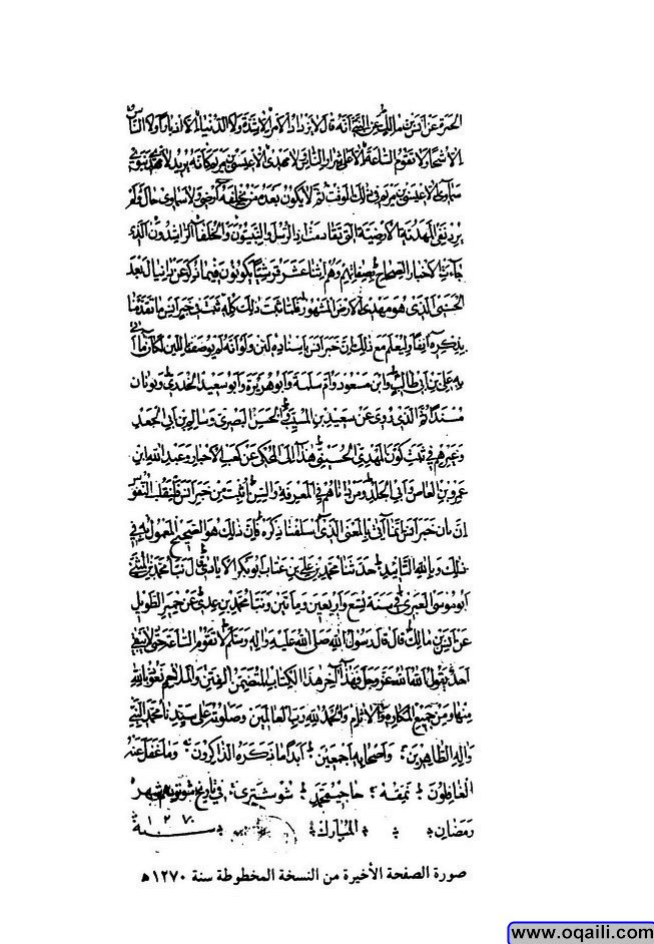 عن انس بن مالك عن النبي انه قال لا يزداد الامر الا شدة ولا الدنيا الا ادبارا ولا الناس
الا شحا ولا تقوم الساعة الا على شرار الناس ولا مهدي الا عيسى بن مريم كانه يريد لا مهدي
الا عيسى بن مريم في ذلك الوقت ثم لا يكون بعده من يخلفه ارضي ولا سماوي
الارضية التي الرسل والنبيون والخلفا الراشدون الذي
جاءت الاخبار الصحاح بصفاتهم وهم اثنا عشر قرشيا يكونون فيما ذكر عن دانيال بعد
الحسني الذي هو مهدي الارض المشهور فلما ثبت ذلك كله ثبت خبر انس ما تقدمنا
بذكره انفا وليعلم مع ذلك ان خبر انس باسناده لين ولو انه لم يوصف باللين لكان ما اتى
به علي بن ابي طالب وابن مسعود وام سلمة وابو هريرة وابو سعيد الخدري وثوبان
مسندا ثم الذي روي عن سعيد بن المسيب الحسن البصري وسالم بن ابي الجعد
وغيرهم في تثبت كون المهدي الحسني هذا الى المحكي عن كعب الاحبار وعبد الله ابن
عمرو بن العاص وابي الجلد ومن في المعرفة والسن اثبت من خبر انس
خبر انس بالمعنى الذي اسلفنا ذكره فان ذلك هو الصحيح المعمول به في
ذلك وبالله التاييد حدثنا محمد بن علي بن عتاب ابو بكر الايادي قال نبا محمد بن المثنى
ابو موسى العبري في سنة تسع واربعين ومأتين ونبا محمد بن عدي عن حميد الطويل
عن انس بن مالك قال قال رسول الله صلى الله عليه واله وسلم لا تقوم الساعة حتى لا يبقى
احد يقول الله الله عز وجل فهذا اخر هذا الكتاب المتضمن الفتن والملاحم نعوذ بالله
منها ومن جميع المكاره والاثام والحمد لله رب العالمين وصلوته على سيدنا محمد النبي
واله الطاهرين واصحابه اجمعين ابدا ما ذكره الذاكرون وما غفل عنه
الغافلون نمقه حاجي محمد شوشتري في تاريخ شهر
رمضان المبارك سنة ١٢٧٠
صورة الصفحة الأخيرة من النسخة المخطوطة سنة ١٢٧٠هـ
www.oqaili.com